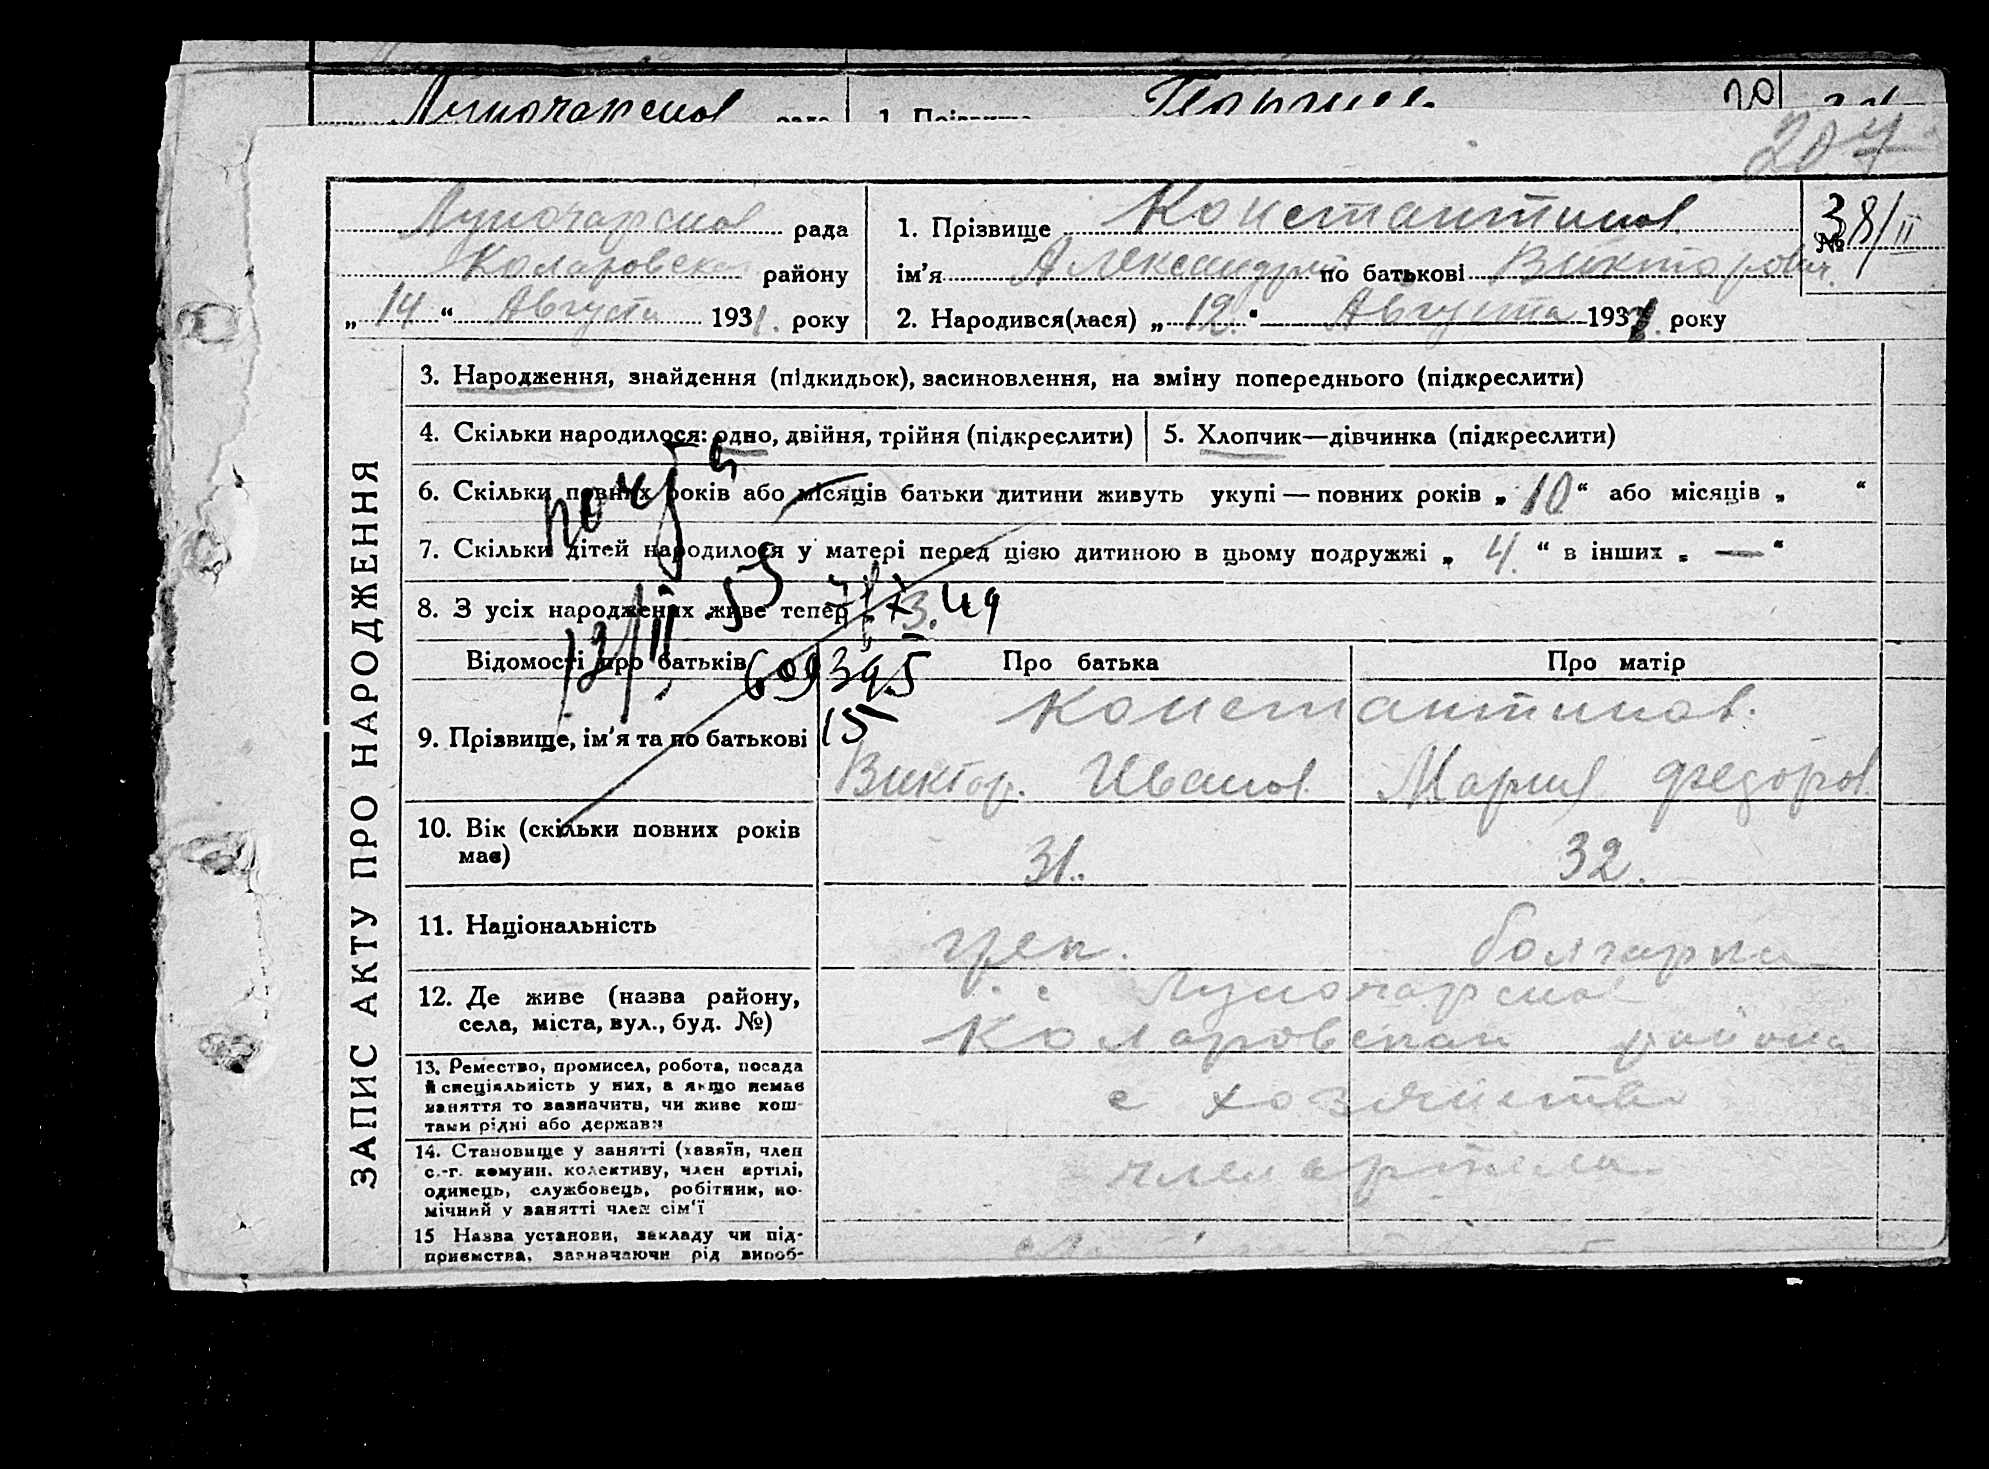 Луночарског рада
1. Прізвище
20
207
Луночарског рада
1. Прізвище Константинов
№ 38/II
Коларовска району
ім'я Александр по батькові Викторович
„ 14 “ Августа 1931. року
2. Народився(лася) „ 12. “ Августа 1931. року
ЗАПИС АКТУ ПРО НАРОДЖЕННЯ
3. Народження, знайдення (підкидьок), засиновлення, на зміну попереднього (підкреслити)
4. Скільки народилося: одно, двійня, трійня (підкреслити)
5. Хлопчик—дівчинка (підкреслити)
6. Скільки повних років або місяців батьки дитини живуть укупі — повних років „ 10 “ або місяців „ “
7. Скільки дітей народилося у матері перед цією дитиною в цьому подружжі „ 4. “ в інших „ — “
8. З усіх народжених живе тепер 3.
49
12/II 55
609395
15
Відомості про батьків
Про батька
Про матір
9. Прізвище, ім'я та по батькові
Константинов.
Виктор. Иванов.
Мария Федоров.
10. Вік (скільки повних років має)
31.
32.
11. Національність
грек.
болгарка
12. Де живе (назва району, села, міста, вул., буд. №)
с. Луночарског
Коларовском района
13. Ремество, промисел, робота, посада
й спеціяльність у них, а якщо немає
заняття то зазначити, чи живе кош-
тами рідні або держави
с хозяйство
14. Становище у занятті (хазяїн, член
с.-г. комуни, колективу, член артілі,
одинець, службовець, робітник, по-
мічний у занятті член сім'ї
член артела
15 Назва установи, закладу чи під-
приємства, зазначаючи рід вироб-